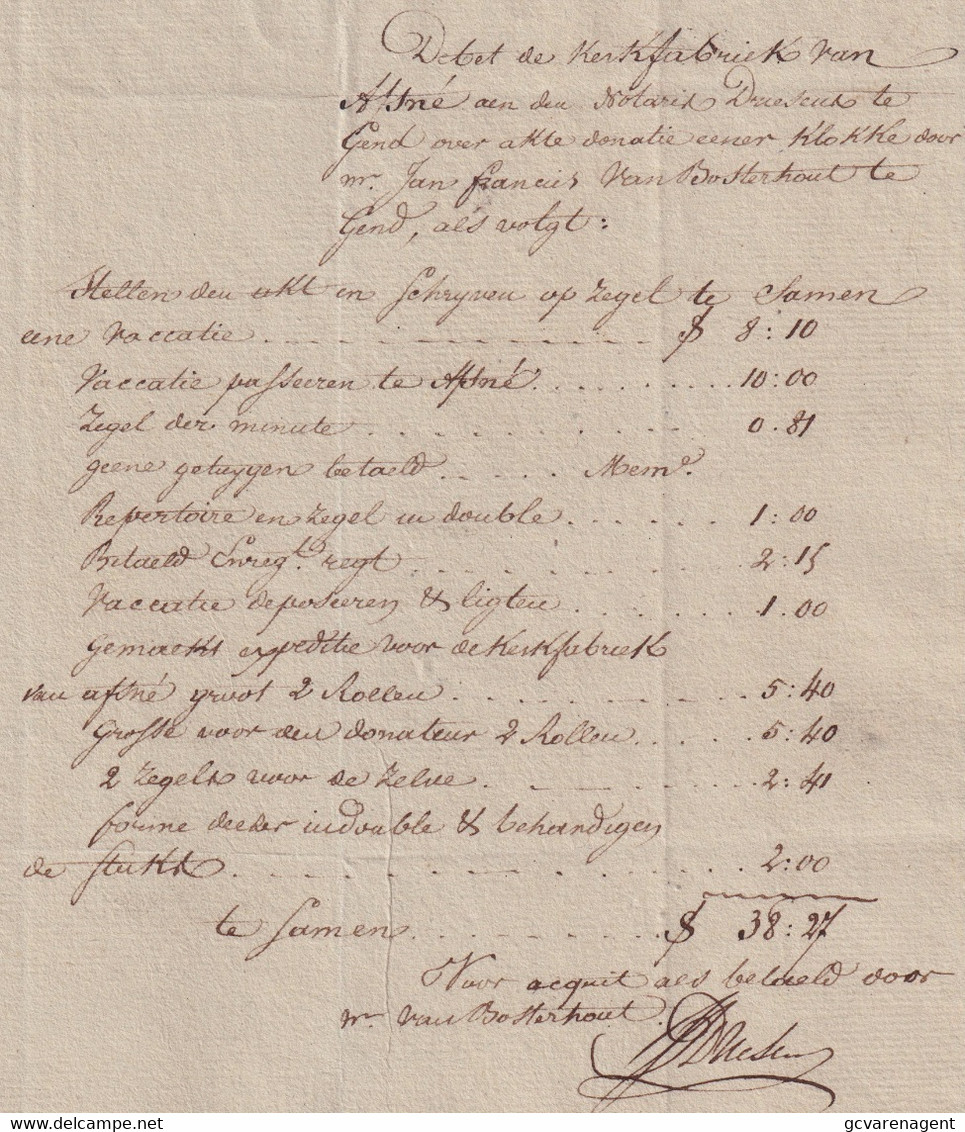 Debet de Kerkfabriek van
Afsné aen den Notaris Druesens te
Gend over akte donatie eener klokke door
mr. Jan francies Van Bosterhout te
Gend, als volgt:
Stellen den akt en schryven op zegel te Samen
eene vaccatie . . . . . . . . . . . $ 8:10
Vaccatie passeeren te Afsné . . . . . . . 10:00
Zegel der minute . . . . . . . . . 0.81
geene getuygen betaeld . . . . . Memo.
Repertoire en zegel in double . . . . . . 1:00
Betaeld Enregt. regt . . . . . . . . . 2:15
Vaccatie deposeeren & ligten . . . . . . 1.00
Gemaekt expeditie voor de Kerkfabriek
van afsné groot 2 Rollen . . . . . . . . 5:40
Grosse voor den donateur 2 Rollen . . . . 5:40
2 Zegels voor de zelve . . . . . . . . 2:41
forme in double & behandigen
de stuks . . . . . . . . . . . . . 2:00
te Samen . . . . . . . . . $ 38:27
Voor acquit als betaeld door
mr van Bosterhout.
gcvarenagent